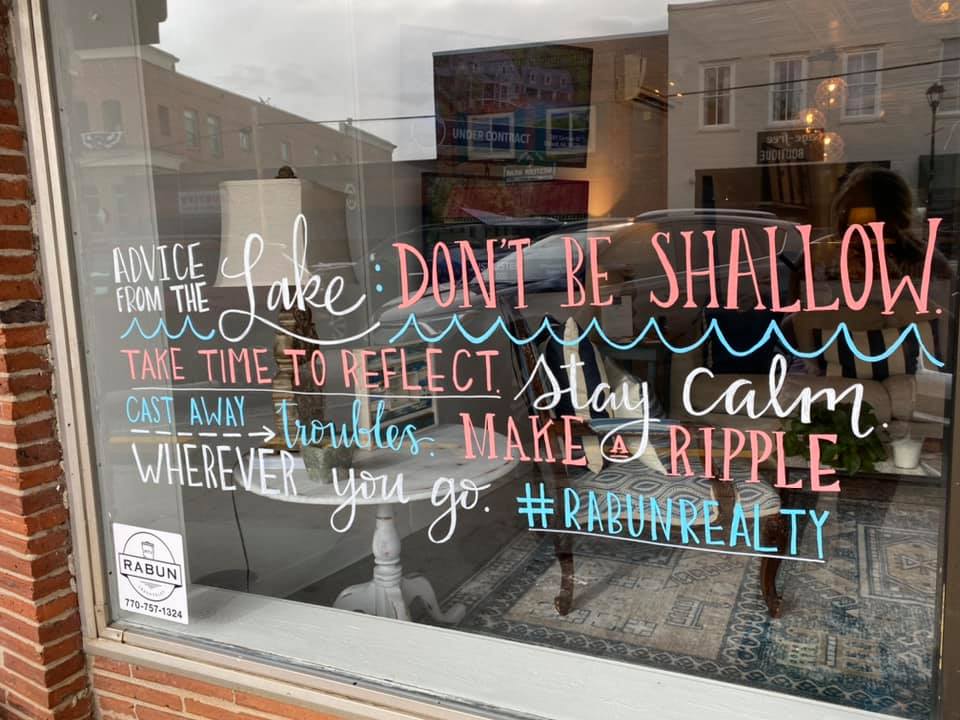 ADVICE FROM THE Lake: DON'T BE SHALLOW.
TAKE TIME TO REFLECT. Stay Calm.
CAST AWAY troubles. MAKE A RIPPLE
WHEREVER you go. #RABUNREALTY
UNDER CONTRACT
BOUTIQUE
RABUN
770-757-1324